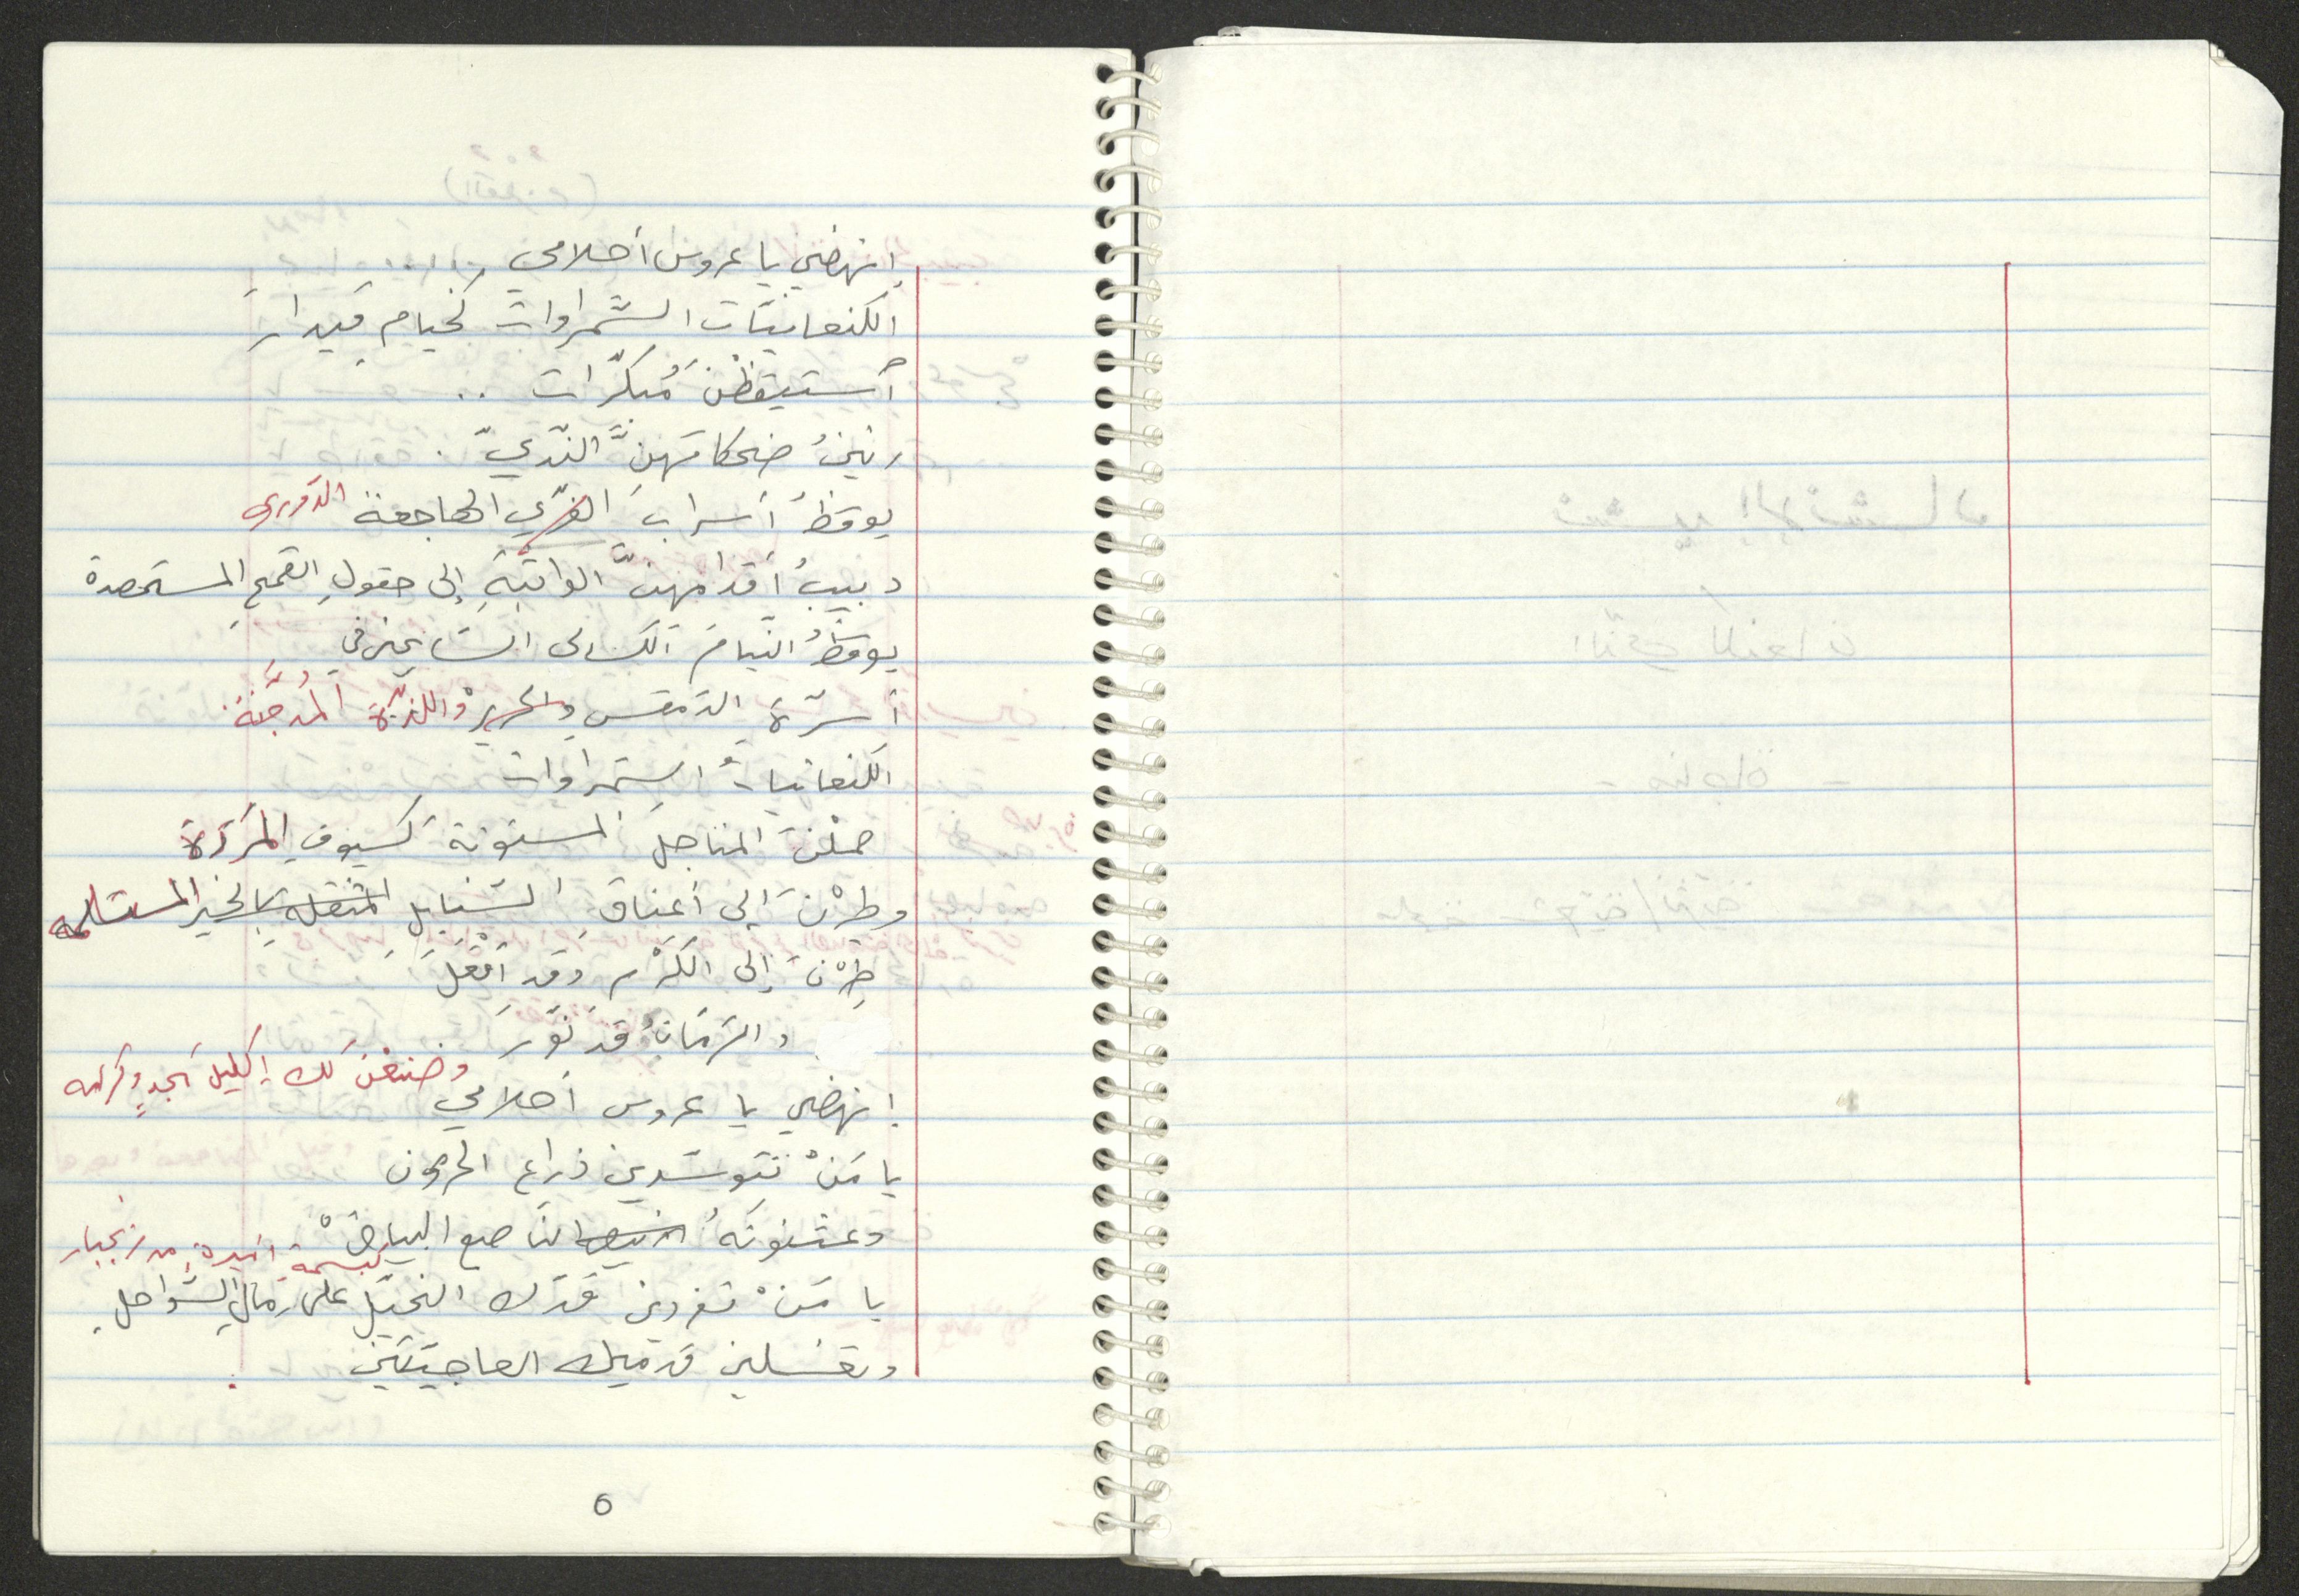 إنهضي يا عروس أحلامي
الكنعانيّات السّمراوات كخيام قيدارَ
أستيقظْنَ مُبكّرات ..
رنينُ ضحكاتهنَّ النّديّ .
يوقظُ أسرابَ القرّي الهاجعة الدّوري
دبيبُ أقدامهنّ الواثبةِ إلى حقولِ القمحِ المستحصدة
يوقظُ النّيامَ الكسالى السّابحين في
أسرّة الدّمقس والحرير واللذة المُدجّنة.
الكنعانياتُ السّمراوات
حملْنَ المناجلَ المسنونةَ كسيوفِ المَرَدَة
وطِرْنَ إلى أعناقِ السّنابلِ المثقلة بالخير المستسلمه
طِرْنَ إلى الكَرْم وقد أقْعَلَ
والرّمّانُ قد نَوّرَ
وضفَرْنَ لك إكليل مجدٍ وكرامه
إنهضي يا عروس أحلامي
يا مَنْ تتوسّدين ذراع الحرمون
وعثنونَهُ الناصع البياضْ
كبسمة أميرة من زنجبار
يا مَنْ تفردين قدّك النخيل على رمالِ السّواحلِ
وتغسلين قدميك العاجيتين
٥